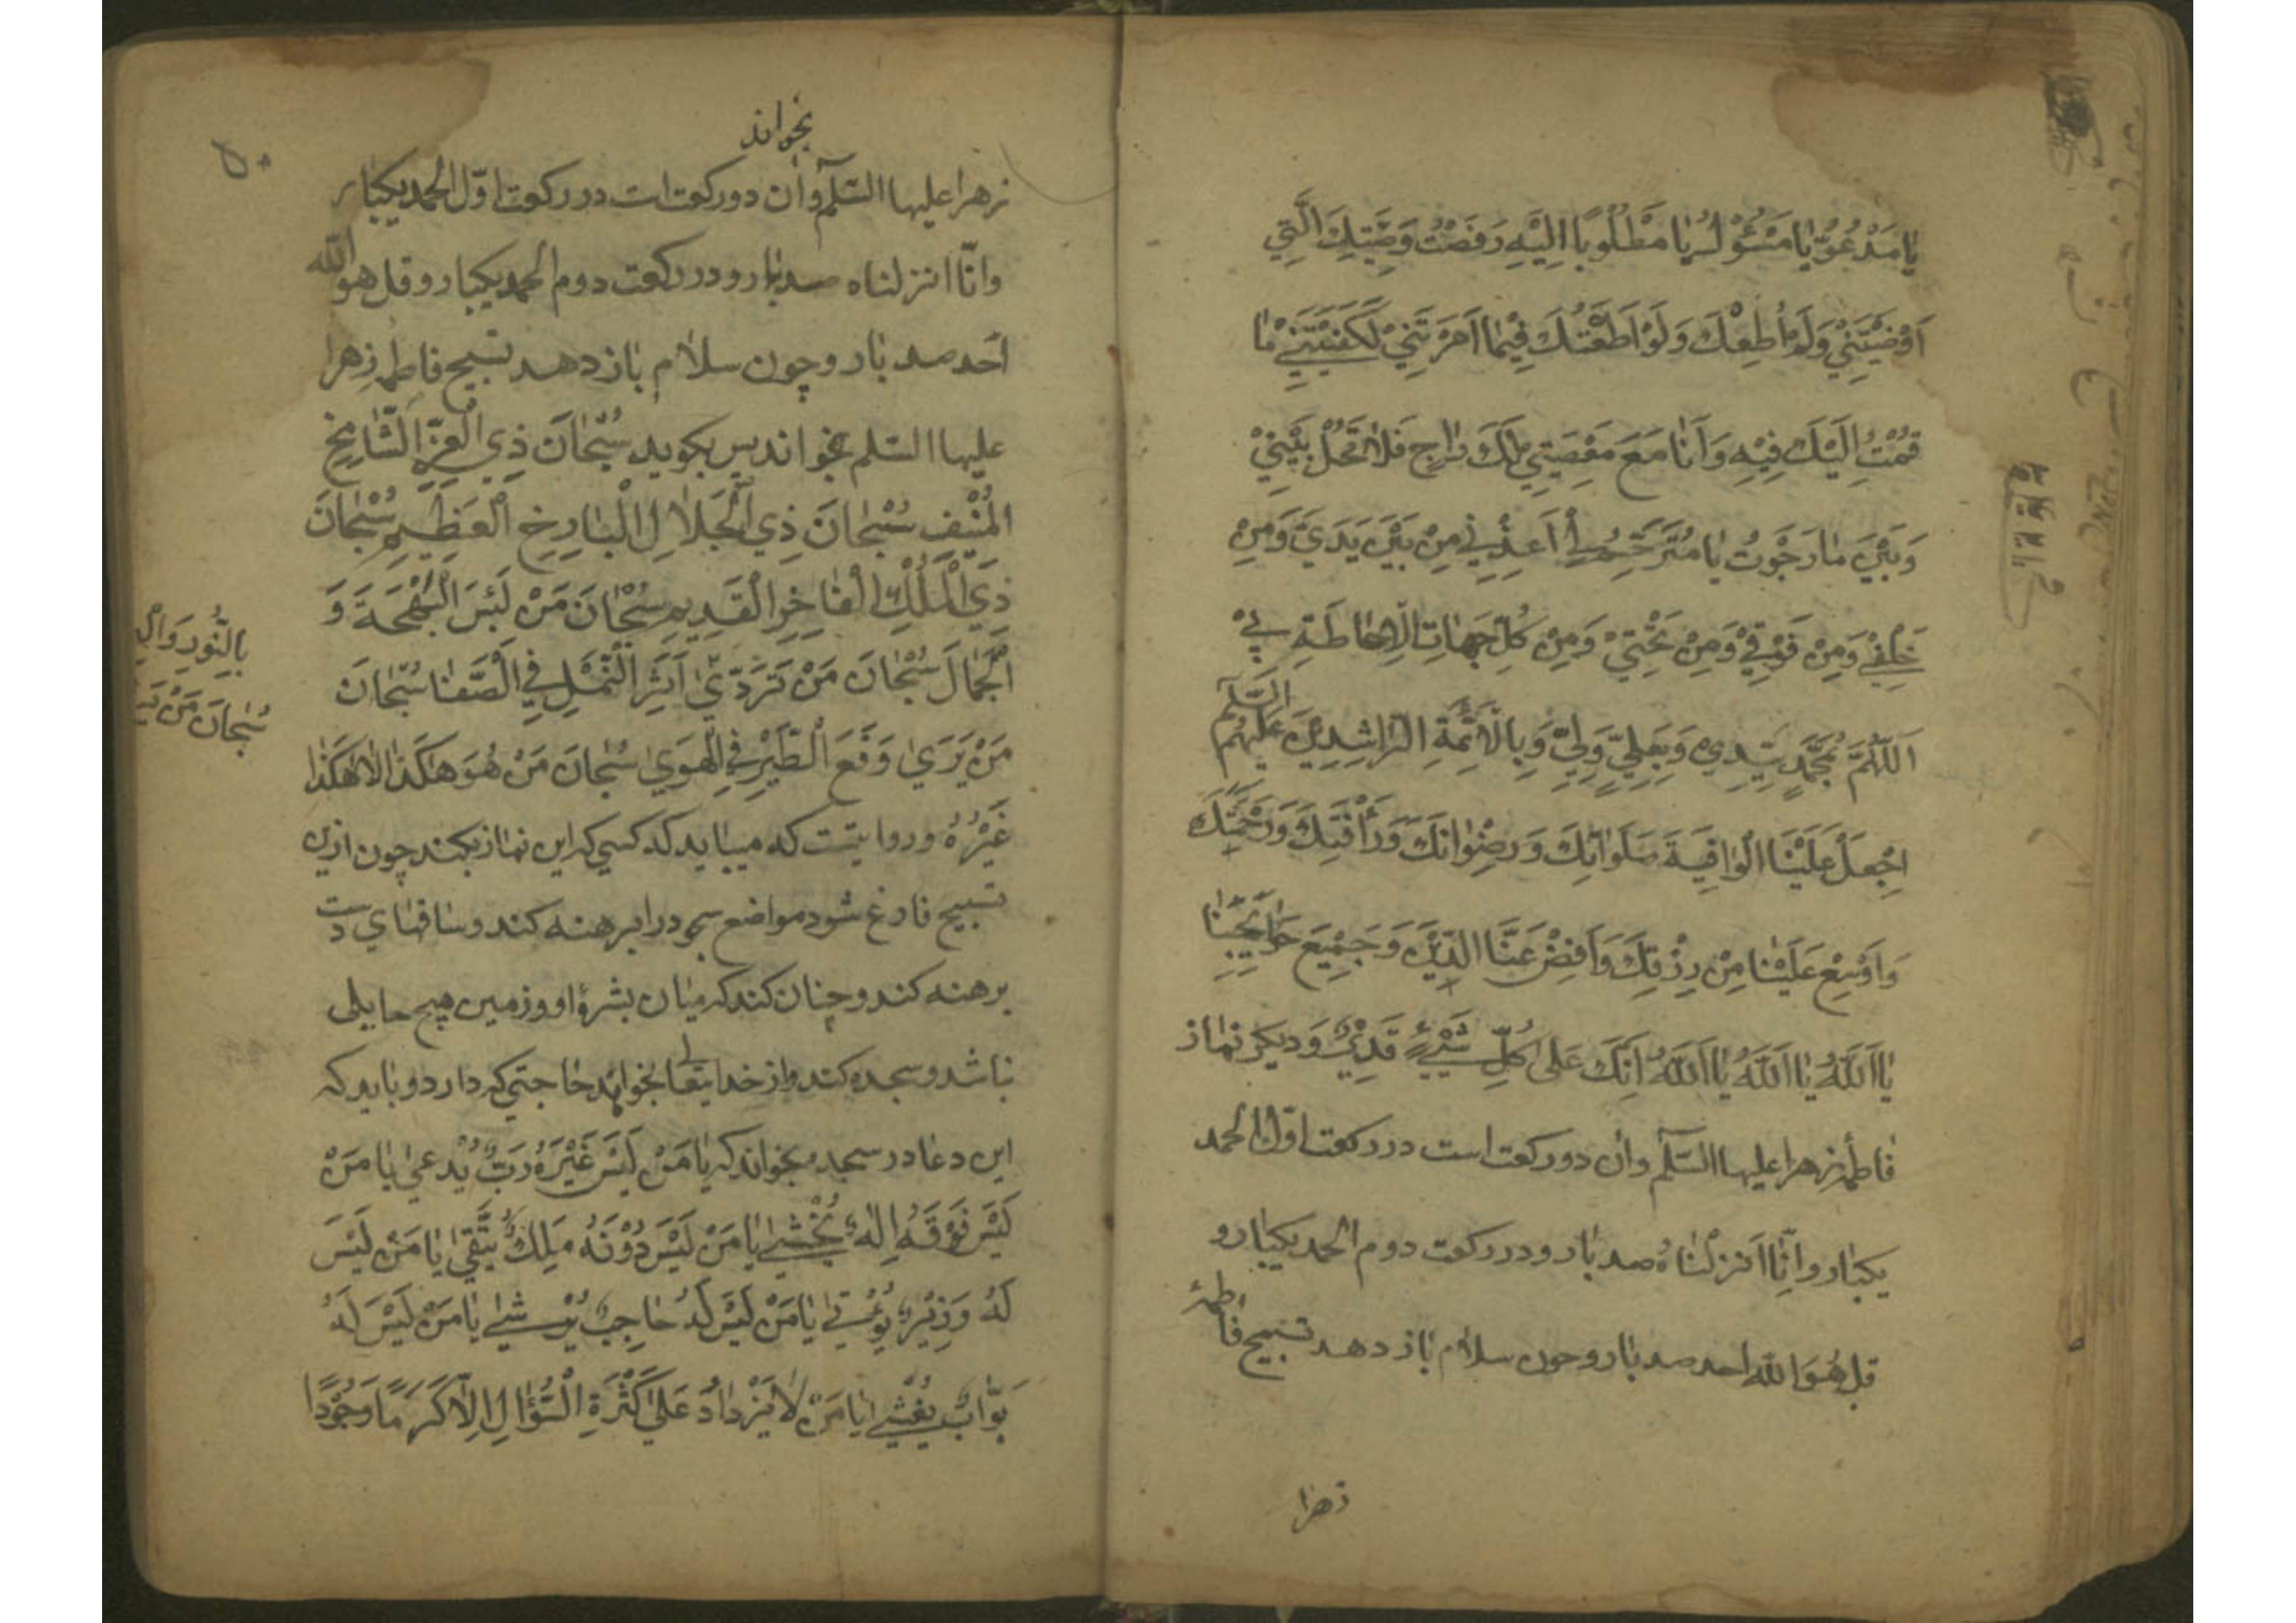 يٰا مَدْعُوُّ يٰا مَسْؤُلُ يٰا مَطْلُوبًا اِلَيْهِ رَفَضْتُ وَصِيَّتِكَ الَّتِي
اَوْصَيْتَنِيْ وَلَمْ اُطِعْكَ وَلَوْ اَطَعْتُكَ فِيْمٰا اَمَرْتَنِيْ لَكَفَيْتَنِيْ مٰا
قُمْتُ اِلَيْكَ فِيْهِ وَاَنَا مَعَ مَعْصِيَتِيْ لَكَ رٰاجٍ فَلاٰ تَحُلْ بَيْنِيْ
وَبَيْنَ مٰا رَجَوْتُ يٰا مُتَرَحِّمُ لِيْ اَعِذْنِي مِنْ بَيْنَ يَدَيَّ وَمِنْ
خَلْفِيْ وَمِنْ فَوْقِيْ وَمِنْ تَحْتِيْ وَمِنْ كُلِّ جِهٰاتِ الْاِحٰاطَةِ بِيْ
اَللّٰهُمَّ بِمُحَمَّدٍ سَيِّدِيْ وَبِعَلِيٍّ وَلِيِّ وَبِالْاَئِمَّةِ الرّٰاشِدِيْنَ عَلَيْهِمُ السَّلٰم
اِجْعَلْ عَلَيْنَا الْوٰاقِيَةَ صَلَوٰاتِكَ وَرِضْوٰانَكَ وَرَأْفَتِكَ وَرَحْمَتِكَ
وَاَوْسِعْ عَلَيْنٰا مِنْ رِزْقِكَ وَاَفِضْ عَنَّا الدَّيْنَ وَجَمِيْعَ حَوٰائِجِنٰا
يٰا اَللّٰهُ يٰا اَللّٰهُ يٰا اَللّٰهُ اِنَّكَ عَلىٰ كُلِّ شَيْءٍ قَدِيْرٌ وَديكر نمٰاز
فٰاطمهٔ زهرا عليها السّلم وان دو ركعت است در ركعت اوّل الحمد
يكبٰار وانّا انزلنٰاهُ صد بٰار ودر ركعت دوم الحمد يكبٰار و
قل هُوَ اللّٰه احد صد بٰار وچون سلاٰم بٰاز دهد تسبيح فاطمهٔ
زهرا
بخواند
زهرا عليها السّلم وان دو ركعت است در ركعت اوّل الحمد يكبٰار
وانّا انزلناه صد بٰار و در ركعت دوم الحمد يكبار و قل هو الله
احد صد بٰار وچون سلاٰم بٰاز دهد تسبيح فاطمهٔ زهرا
عليها السّلم بخواند پس بكويد سُبْحٰانَ ذِي الْعِزِّ الشّٰامِخِ
الْمُنِيْفِ سُبْحٰانَ ذِي الْجَلاٰلِ الْبٰاذِخِ الْعَظِيْمِ سُبْحٰانَ
ذِي الْمُلْكِ الْفٰاخِرِ الْقَدِيمِ سُبْحٰانَ مَنْ لَبِسَ الْبَهْجَةَ وَ
الْجَمٰالَ سُبْحٰانَ مَنْ تَرَدّىٰ
بِالنُّورِ وَال
سُبْحٰانَ مَنْ
اَثَرَ النَّمْلِ فِي الصَّفٰا سُبْحٰانَ
مَنْ يَرَىٰ وَقْعَ الطَّيْرِ فِي الْهَوٰي سُبْحٰانَ مَنْ هُوَ هٰكَذٰا لاٰ هٰكَذٰا
غَيْرُهُ وروايتست كه ميبايد كه كسي كه اين نمٰاز بكند چون ازين
تسبيح فارغ شود مواضع سجود را برهنه كند وساقهٰاي دست
برهنه كند وچنان كند كه ميٰان بشرهٔ او وزمين هيچ حايلى
نبٰاشد وسجده كند واز خدايتعالى بخواهد حٰاجتي كه دارد وبايد كه
اين دعٰا در سجده بخواند كه يٰا مَنْ لَيْسَ غَيْرَهُ رَبٌّ يُدْعىٰ يٰا مَنْ
لَيْسَ فَوْقَهُ اِلٰهٌ يُخْشىٰ يٰا مَنْ لَيْسَ دُوْنَهُ مَلِكٌ يُتَّقىٰ يٰا مَنْ لَيْسَ
لَهُ وَزِيْرٌ يُؤْتىٰ يٰا مَنْ لَيْسَ لَهُ حٰاجِبٌ يُرْشىٰ يٰا مَنْ لَيْسَ لَهُ
بَوّٰابٌ يُغْشىٰ يٰا مَنْ لاٰ يَزْدٰادُ عَلىٰ كَثْرَةِ السُّؤٰالِ اِلّٰا كَرَمًا وَجُوْدًا